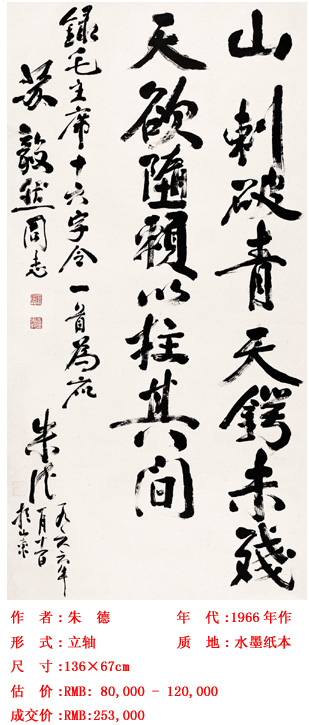 山刺破青天鍔未殘
天欲墮賴以柱其間
錄毛主席十六字令一首為应
苏毅然同志
朱德
一九六六年
於山东
作 者：朱 德 年 代：1966年作
形 式：立轴 质 地：水墨纸本
尺 寸：136×67cm
估 价：RMB: 80,000 - 120,000
成交价：RMB:253,000